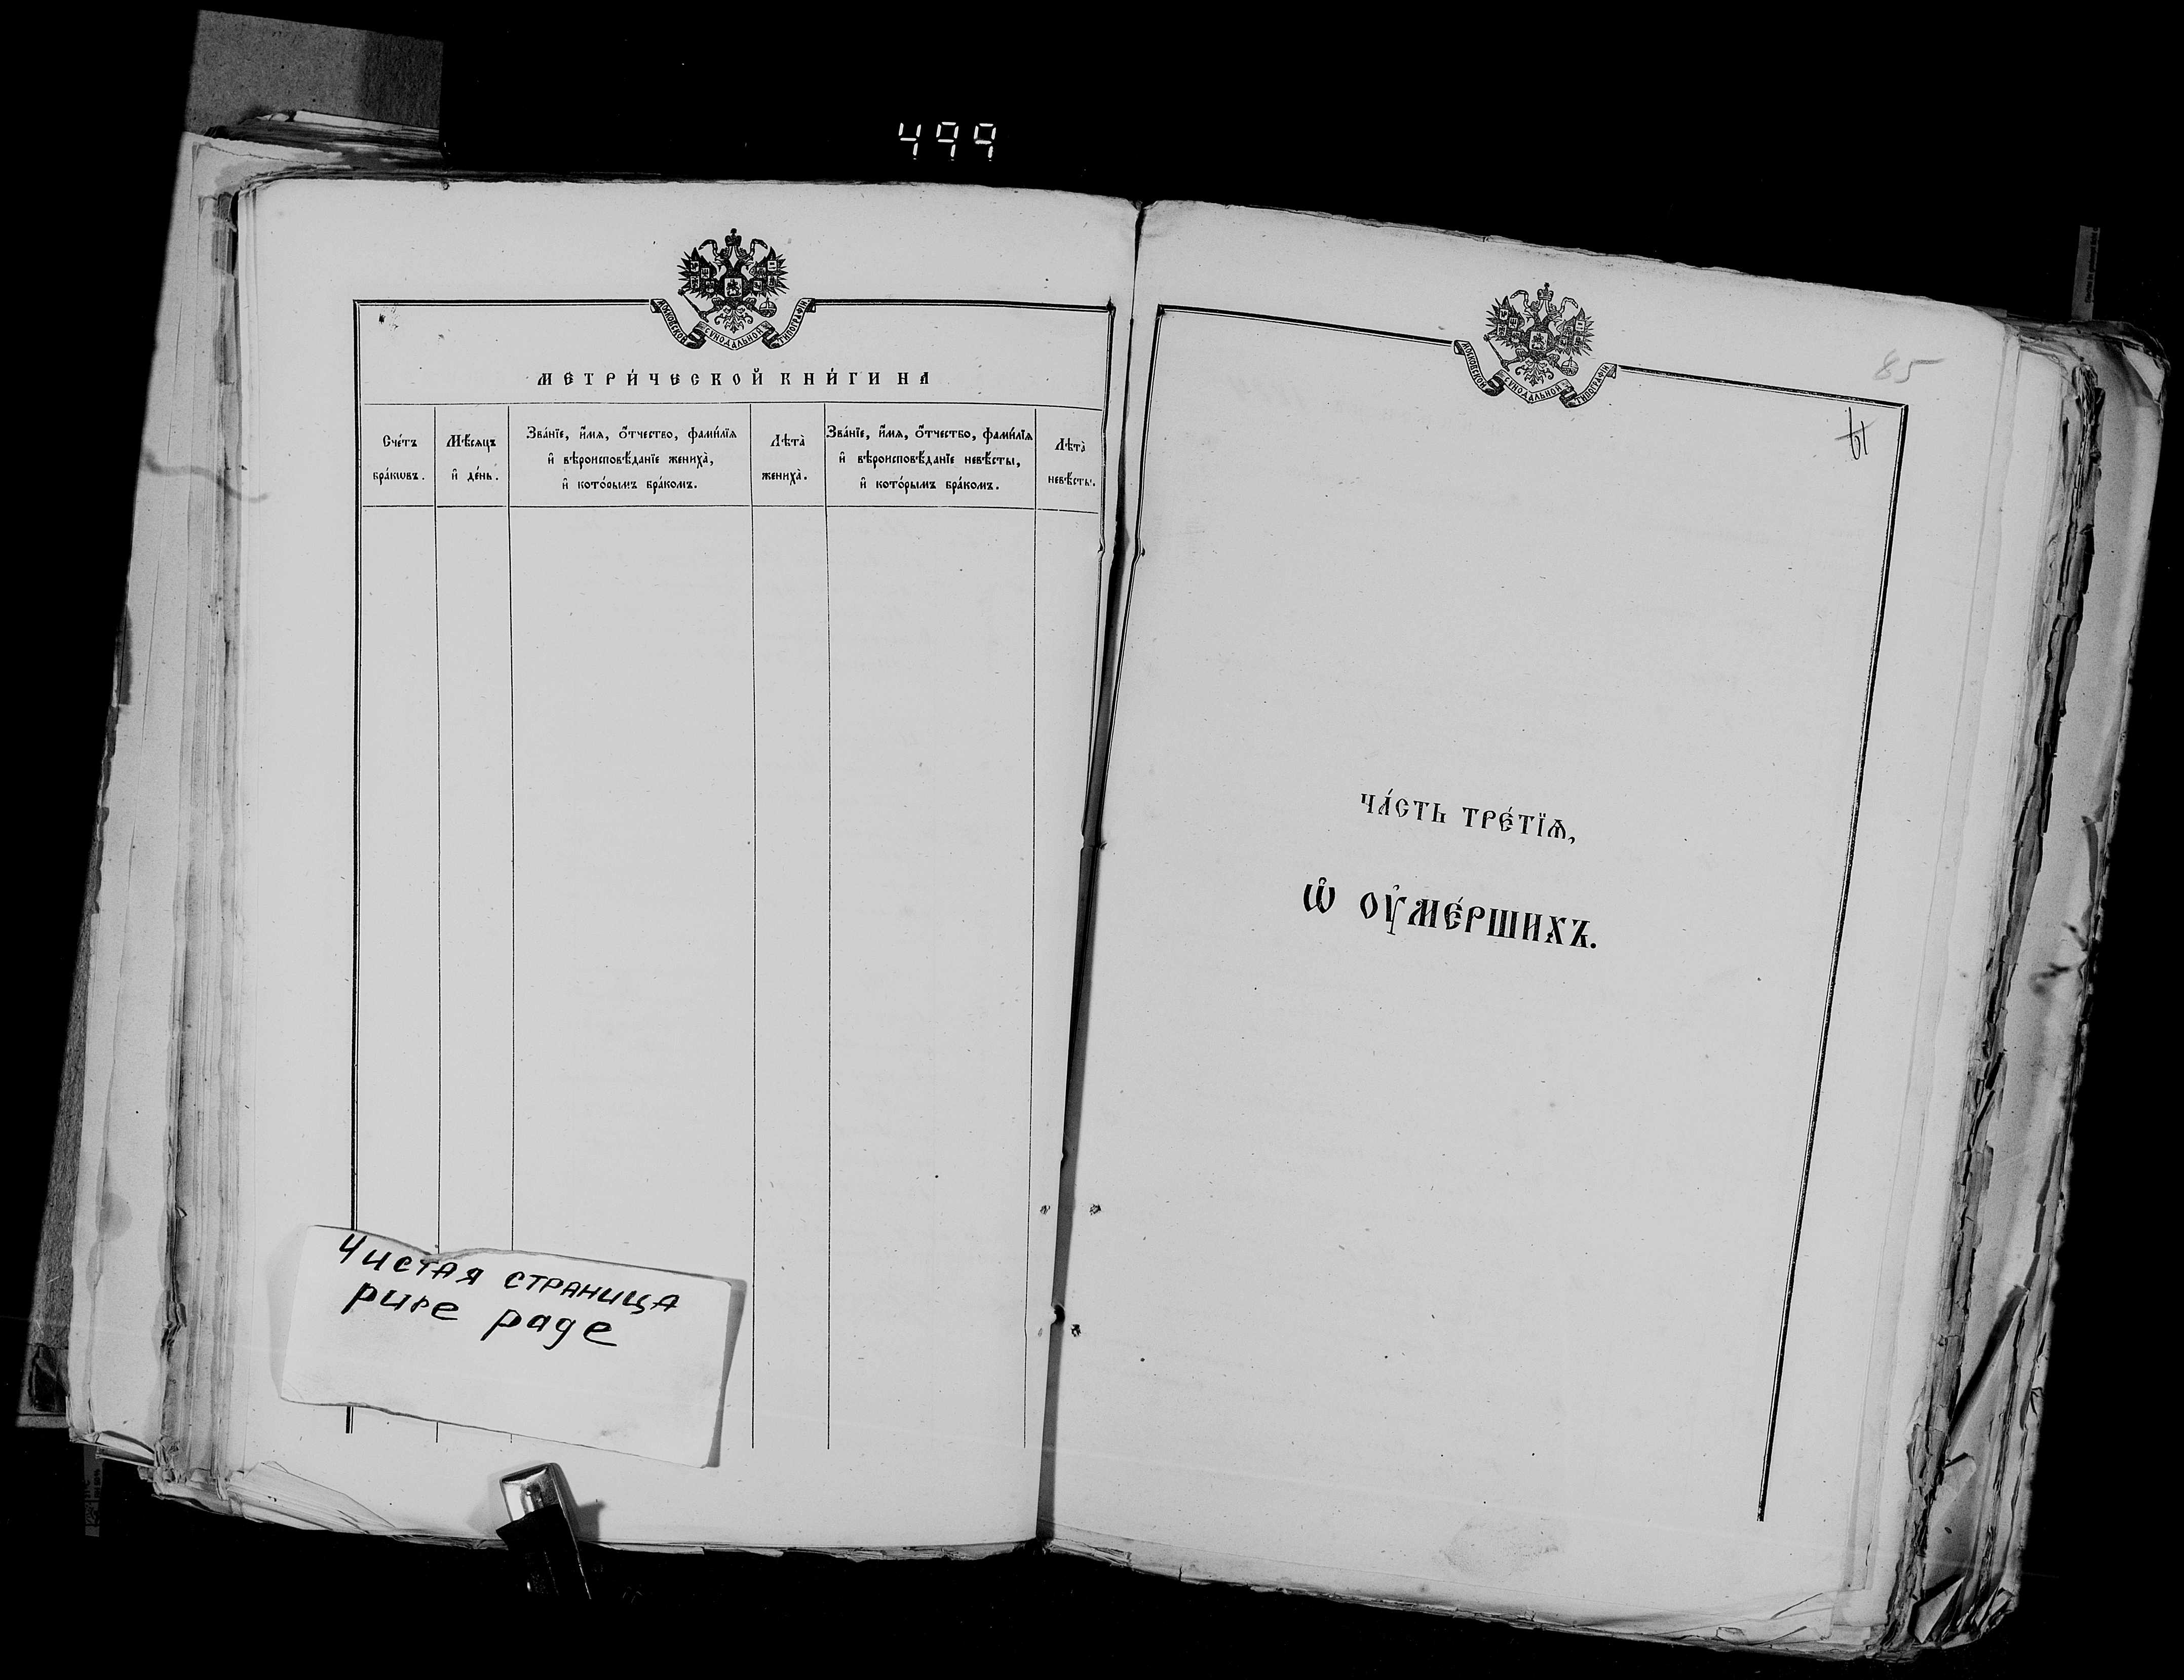 499
МОСКОВСКОЙ СѴНОДАЛЬНОЙ ТИПОГРАФІИ
МЕТРИ́ЧЕСКОЙ КНИ́ГИ НА
Сче́тъ
бра́кѡвъ.
Мѣ́сяцъ
и҆ де́нь.
Зва́нїе, и҆́мя, ѻ҆́тчество, фами́лїя
и҆ вѣроисповѣ́данїе женихà,
и҆ кото́рымъ бра́комъ.
Лѣтà
женихà.
Зва́нїе, и҆́мя, ѻ҆́тчество, фами́лїя
и҆ вѣроисповѣ́данїе невѣ́сты,
и҆ кото́рымъ бра́комъ.
Лѣтà
невѣ́сты.
Чистая страница
pure page
МОСКОВСКОЙ СѴНОДАЛЬНОЙ ТИПОГРАФІИ
85
ЧА́СТЬ ТРЕ́ТЇѦ,
Ѽ ОУ҆МЕ́РШИХЪ.